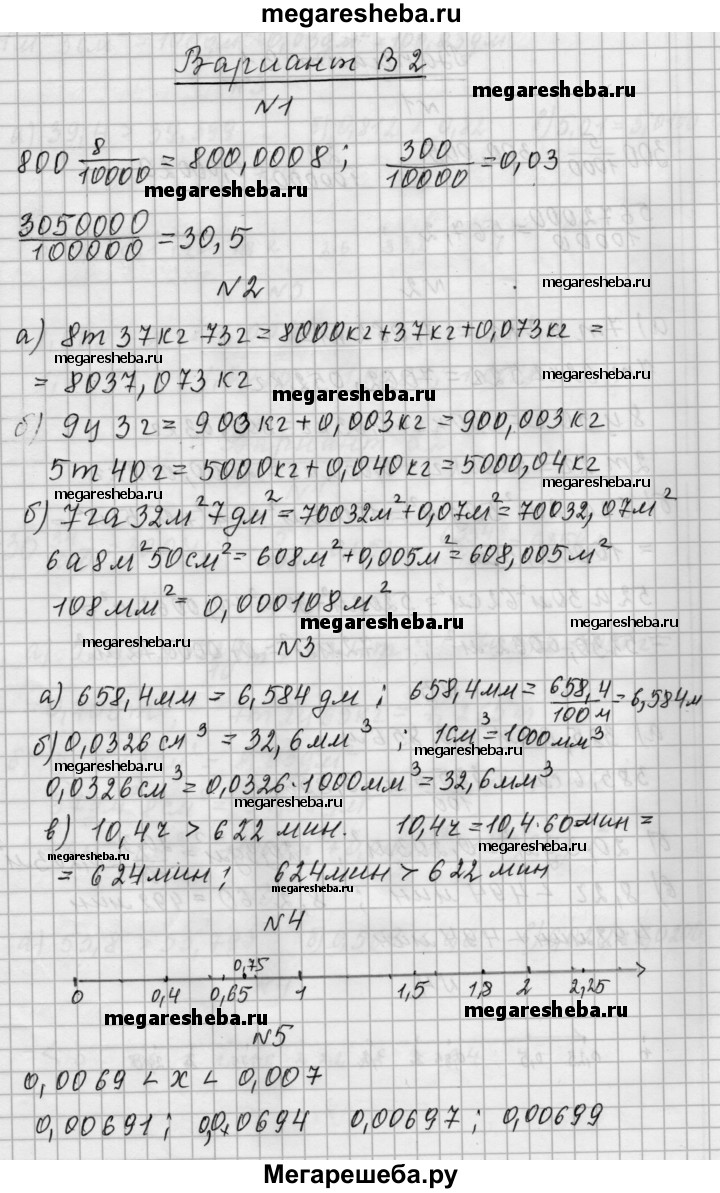 megaresheba.ru
Вариант В2
megaresheba.ru
№1
800 8/10000 = 800,0008 ; 300/10000 = 0,03
megaresheba.ru
3050000/100000 = 30,5
№2
megaresheba.ru
а) 8т 37кг 73г = 8000кг + 37кг + 0,073кг =
megaresheba.ru
= 8037,073 кг
megaresheba.ru
б) 9ц 3г = 900кг + 0,003кг = 900,003кг
5т 40г = 5000кг + 0,040кг = 5000,04кг
megaresheba.ru
б) 7га 32м² 7дм² = 70032м² + 0,07м² = 70032,07м²
6а 8м² 50см² = 608м² + 0,005м² = 608,005м²
108мм² = 0,000108м²
megaresheba.ru
megaresheba.ru
№3
а) 658,4мм = 6,584 дм ; 658,4мм = 658,4/100 м = 6,584м
б) 0,0326 см³ = 32,6мм³ ; 1см³ = 1000мм³
megaresheba.ru
0,0326см³ = 0,0326·1000мм³ = 32,6мм³
megaresheba.ru
в) 10,4ч > 622 мин. 10,4ч = 10,4·60мин =
megaresheba.ru
megaresheba.ru
= 624мин ; 624мин > 622 мин
megaresheba.ru
№4
0,75
0 0,4 0,65 1 1,5 1,8 2 2,25
megaresheba.ru megaresheba.ru
№5
0,0069 < x < 0,007
0,00691 ; 0,00694 0,00697 ; 0,00699
Мегарешеба.ру